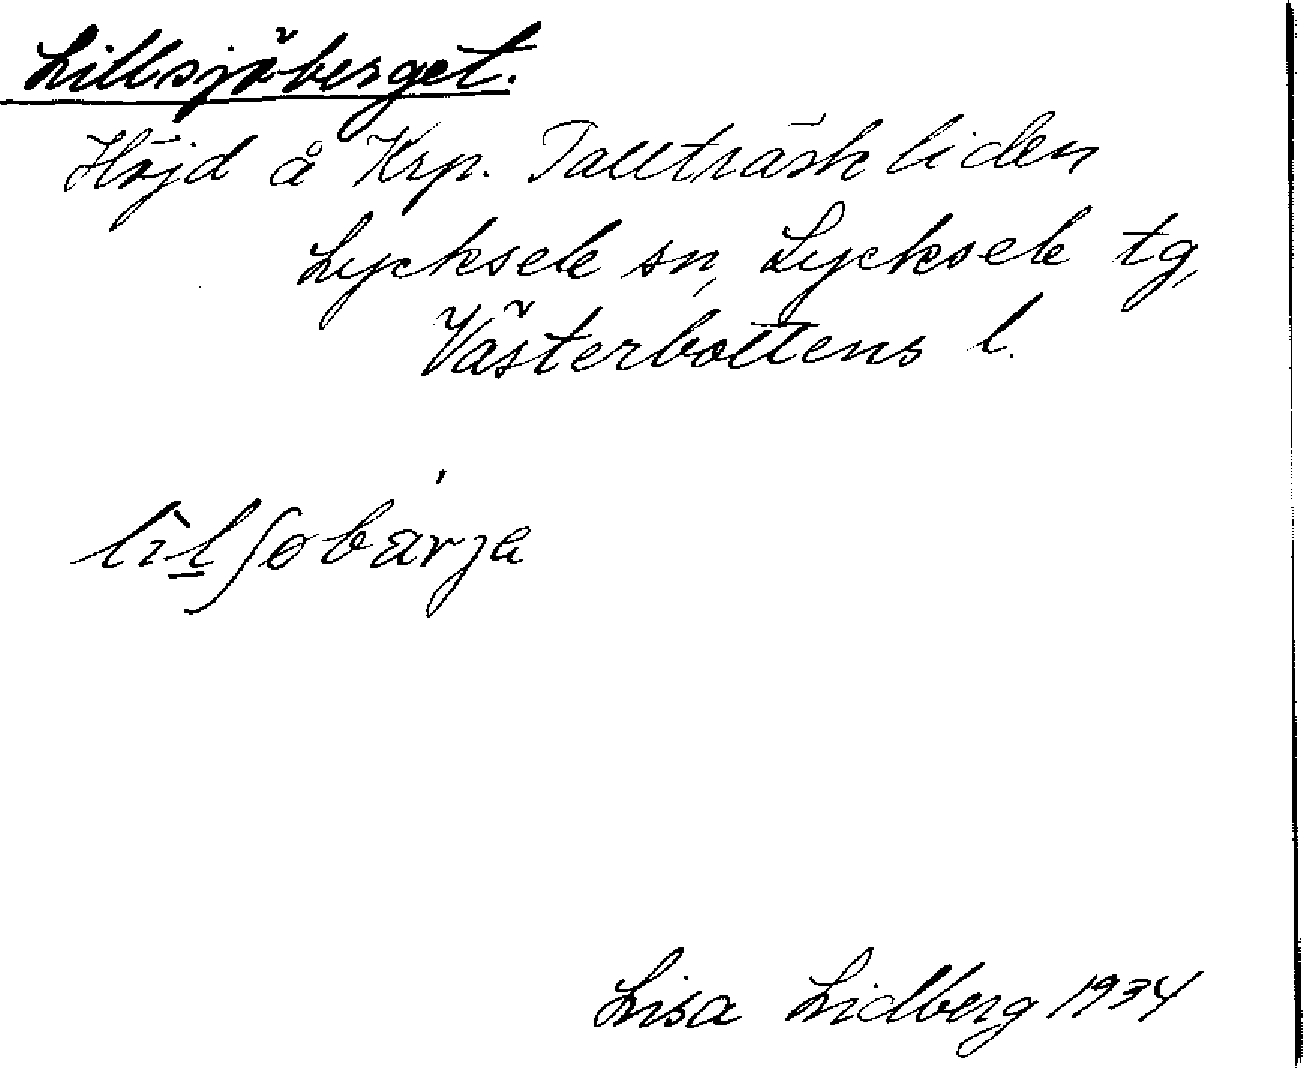 Lillsjöberget.
Höjd å Krp. Tallträskliden
Lycksele sn, Lycksele tg,
Västerbottens l.
lìlʃobárja
Lisa Lidberg 1934